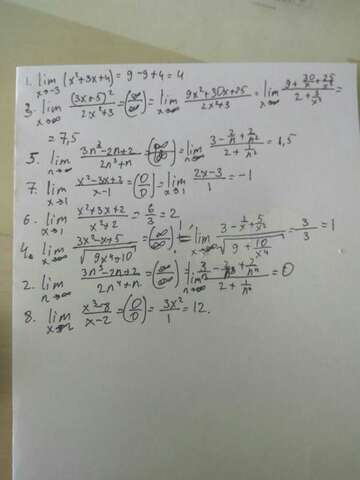 1. lim x→-3 (x²+3x+4) = 9-9+4 = 4
3. lim x→∞ (3x+5)²/(2x²+3) = (∞/∞) = lim x→∞ (9x²+30x+25)/(2x²+3) = lim x→∞ (9+30/x+25/x²)/(2+3/x²) =
= 7,5
5. lim n→∞ (3n²-2n+2)/(2n²+n) = (∞/∞) = lim n→∞ (3-2/n+2/n²)/(2+1/n²) = 1,5
7. lim x→1 (x²-3x+2)/(x-1) = (0/0) = lim x→1 (2x-3)/1 = -1
6. lim x→1 (x²+3x+2)/(x²+2) = 6/3 = 2
4. lim x→∞ (3x²-x+5)/√(9x⁴+10) = (∞/∞) = lim x→∞ (3-1/x+5/x²)/√(9+10/x⁴) = 3/3 = 1
2. lim n→∞ (3n³-2n+2)/(2n⁴+n) = (∞/∞) = lim n→∞ (3/n-2/n³+2/n⁴)/(2+1/n³) = 0
8. lim x→2 (x³-8)/(x-2) = (0/0) = 3x²/1 = 12.